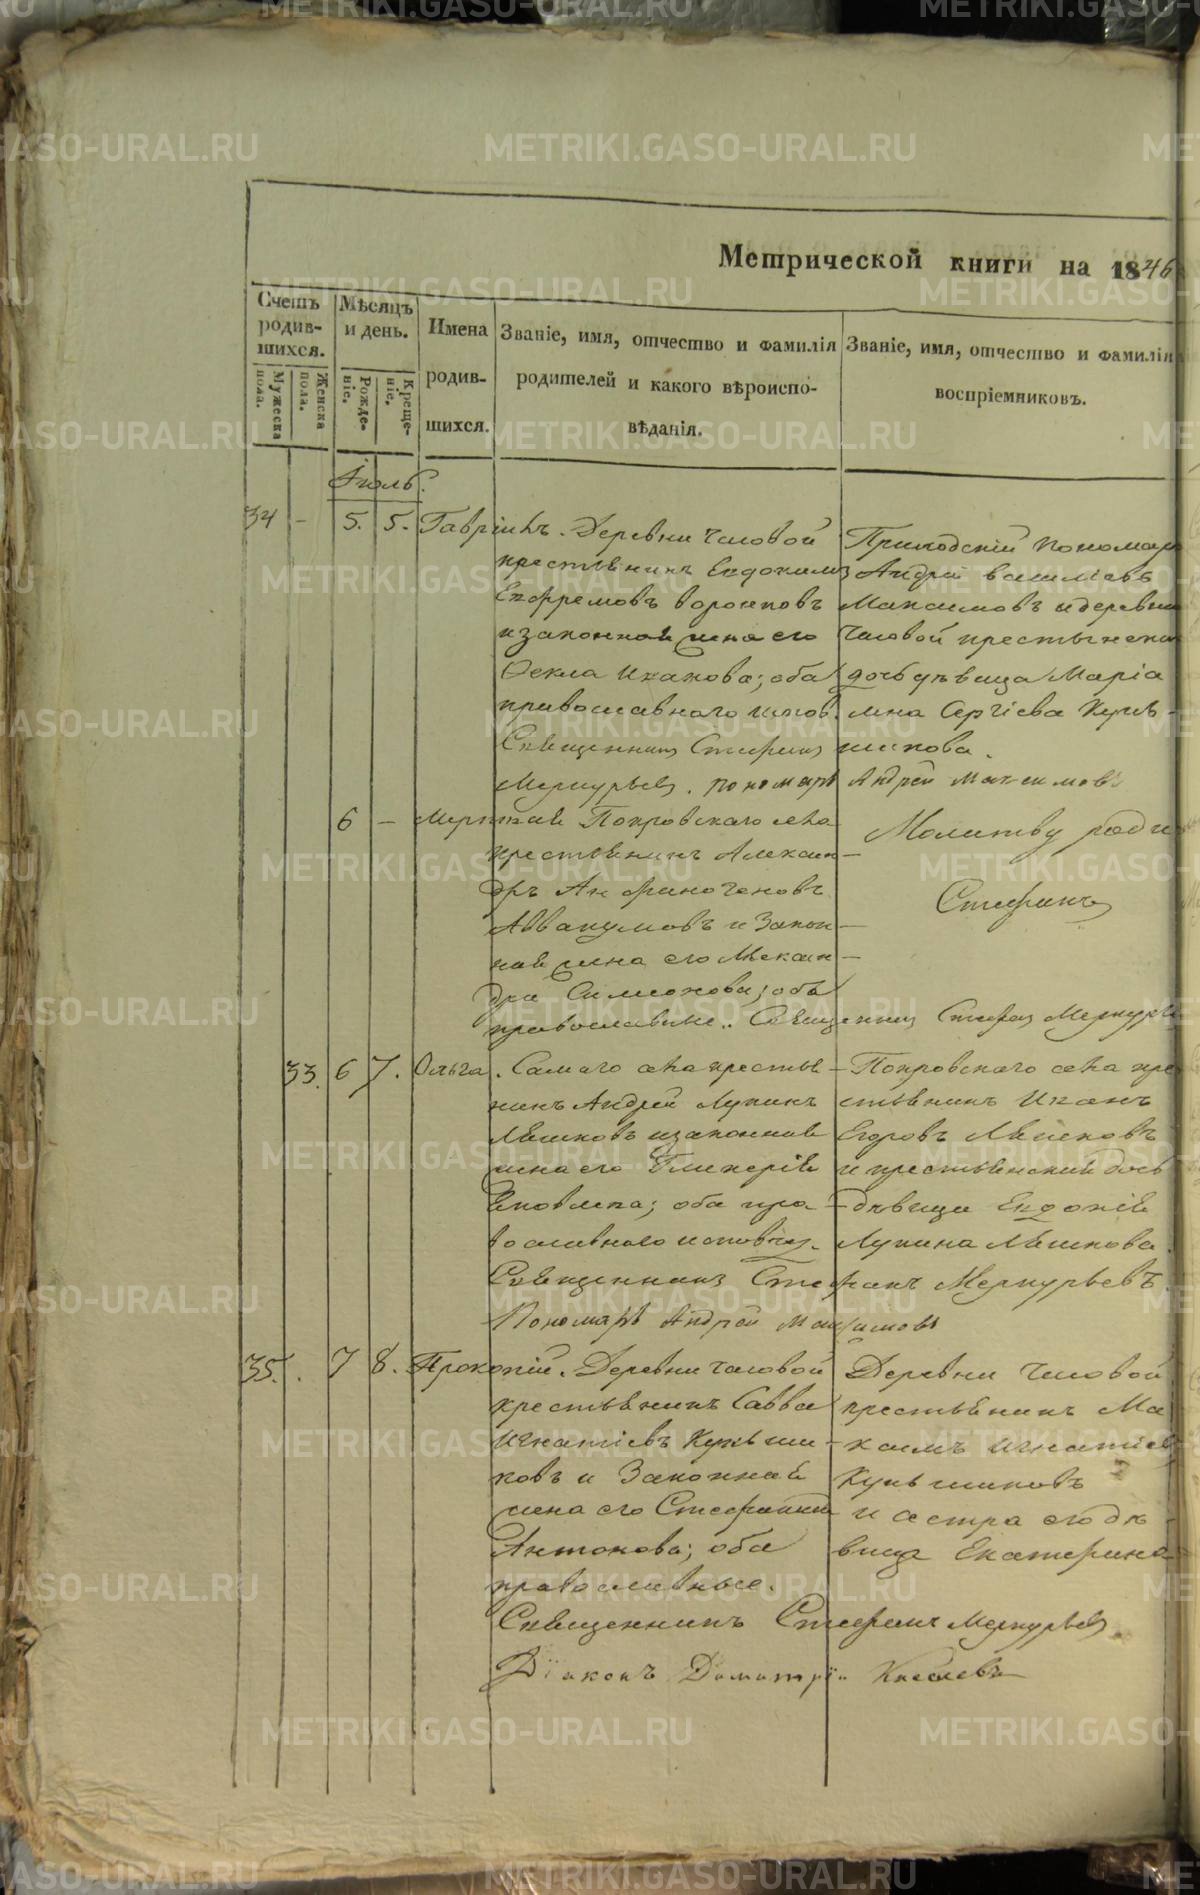 Метрической книги на 1846
Счетъ родив-шихся.
Мужеска пола.
Женска пола.
Мѣсяцъ и день.
Рожде-ніе.
Креще-ніе.
Имена родив-шихся.
Званіе, имя, отчество и фамилія
родителей и какого вѣроиспо-
вѣданія.
Званіе, имя, отчество и фамилія
воспріемниковъ.
Іюль.
34 - 5. 5. Гавріилъ. Деревни Часовой
крестьянинъ Евдокимъ
Ефремовъ Воронковъ
и законная жена его
Фекла Иванова; оба
православнаго испов.
Священникъ Стефанъ
Меркурьевъ. Пономарь Андрей Максимовъ
Приходскій пономарь
Андрей Васильевъ
Максимовъ и деревни
Часовой крестьянская
дочь дѣвица Марія
Сергіева
6 - Мерткай Покровскаго села
крестьянинъ Алексан-
дръ Анфиногеновъ
Аввакумовъ и Закон-
ная жена его Алексан-
дра Симеонова; оба
православные. Священникъ Стефанъ Меркурьевъ
Молитву
Стефанъ
33. 6 7. Ольга. Самаго села крестья-
нинъ Андрей Лукинъ
Ляпковъ и законная
жена его Гликерія
Яковлева; оба пра-
вославнаго исповѣд.
Священникъ Стефанъ Меркурьевъ
Пономарь Андрей Максимовъ
Покровскаго села кре
стьянинъ Иванъ
Егоровъ
и крестьянская дочь
дѣвица Евдокія
Лукина
35. . 7 8. Прокопій. Деревни Часовой
крестьянинъ Савва
Игнатіевъ Кукши-
ковъ и Законная
жена его Стефанида
Антонова; оба
православные.
Священникъ Стефанъ Меркурьевъ
Діаконъ Димитрій
Деревни Часовой
крестьянинъ Ма
ксимъ Игнатіев
и сестра его дѣ-
вица Екатерина
METRIKI.GASO-URAL.RU